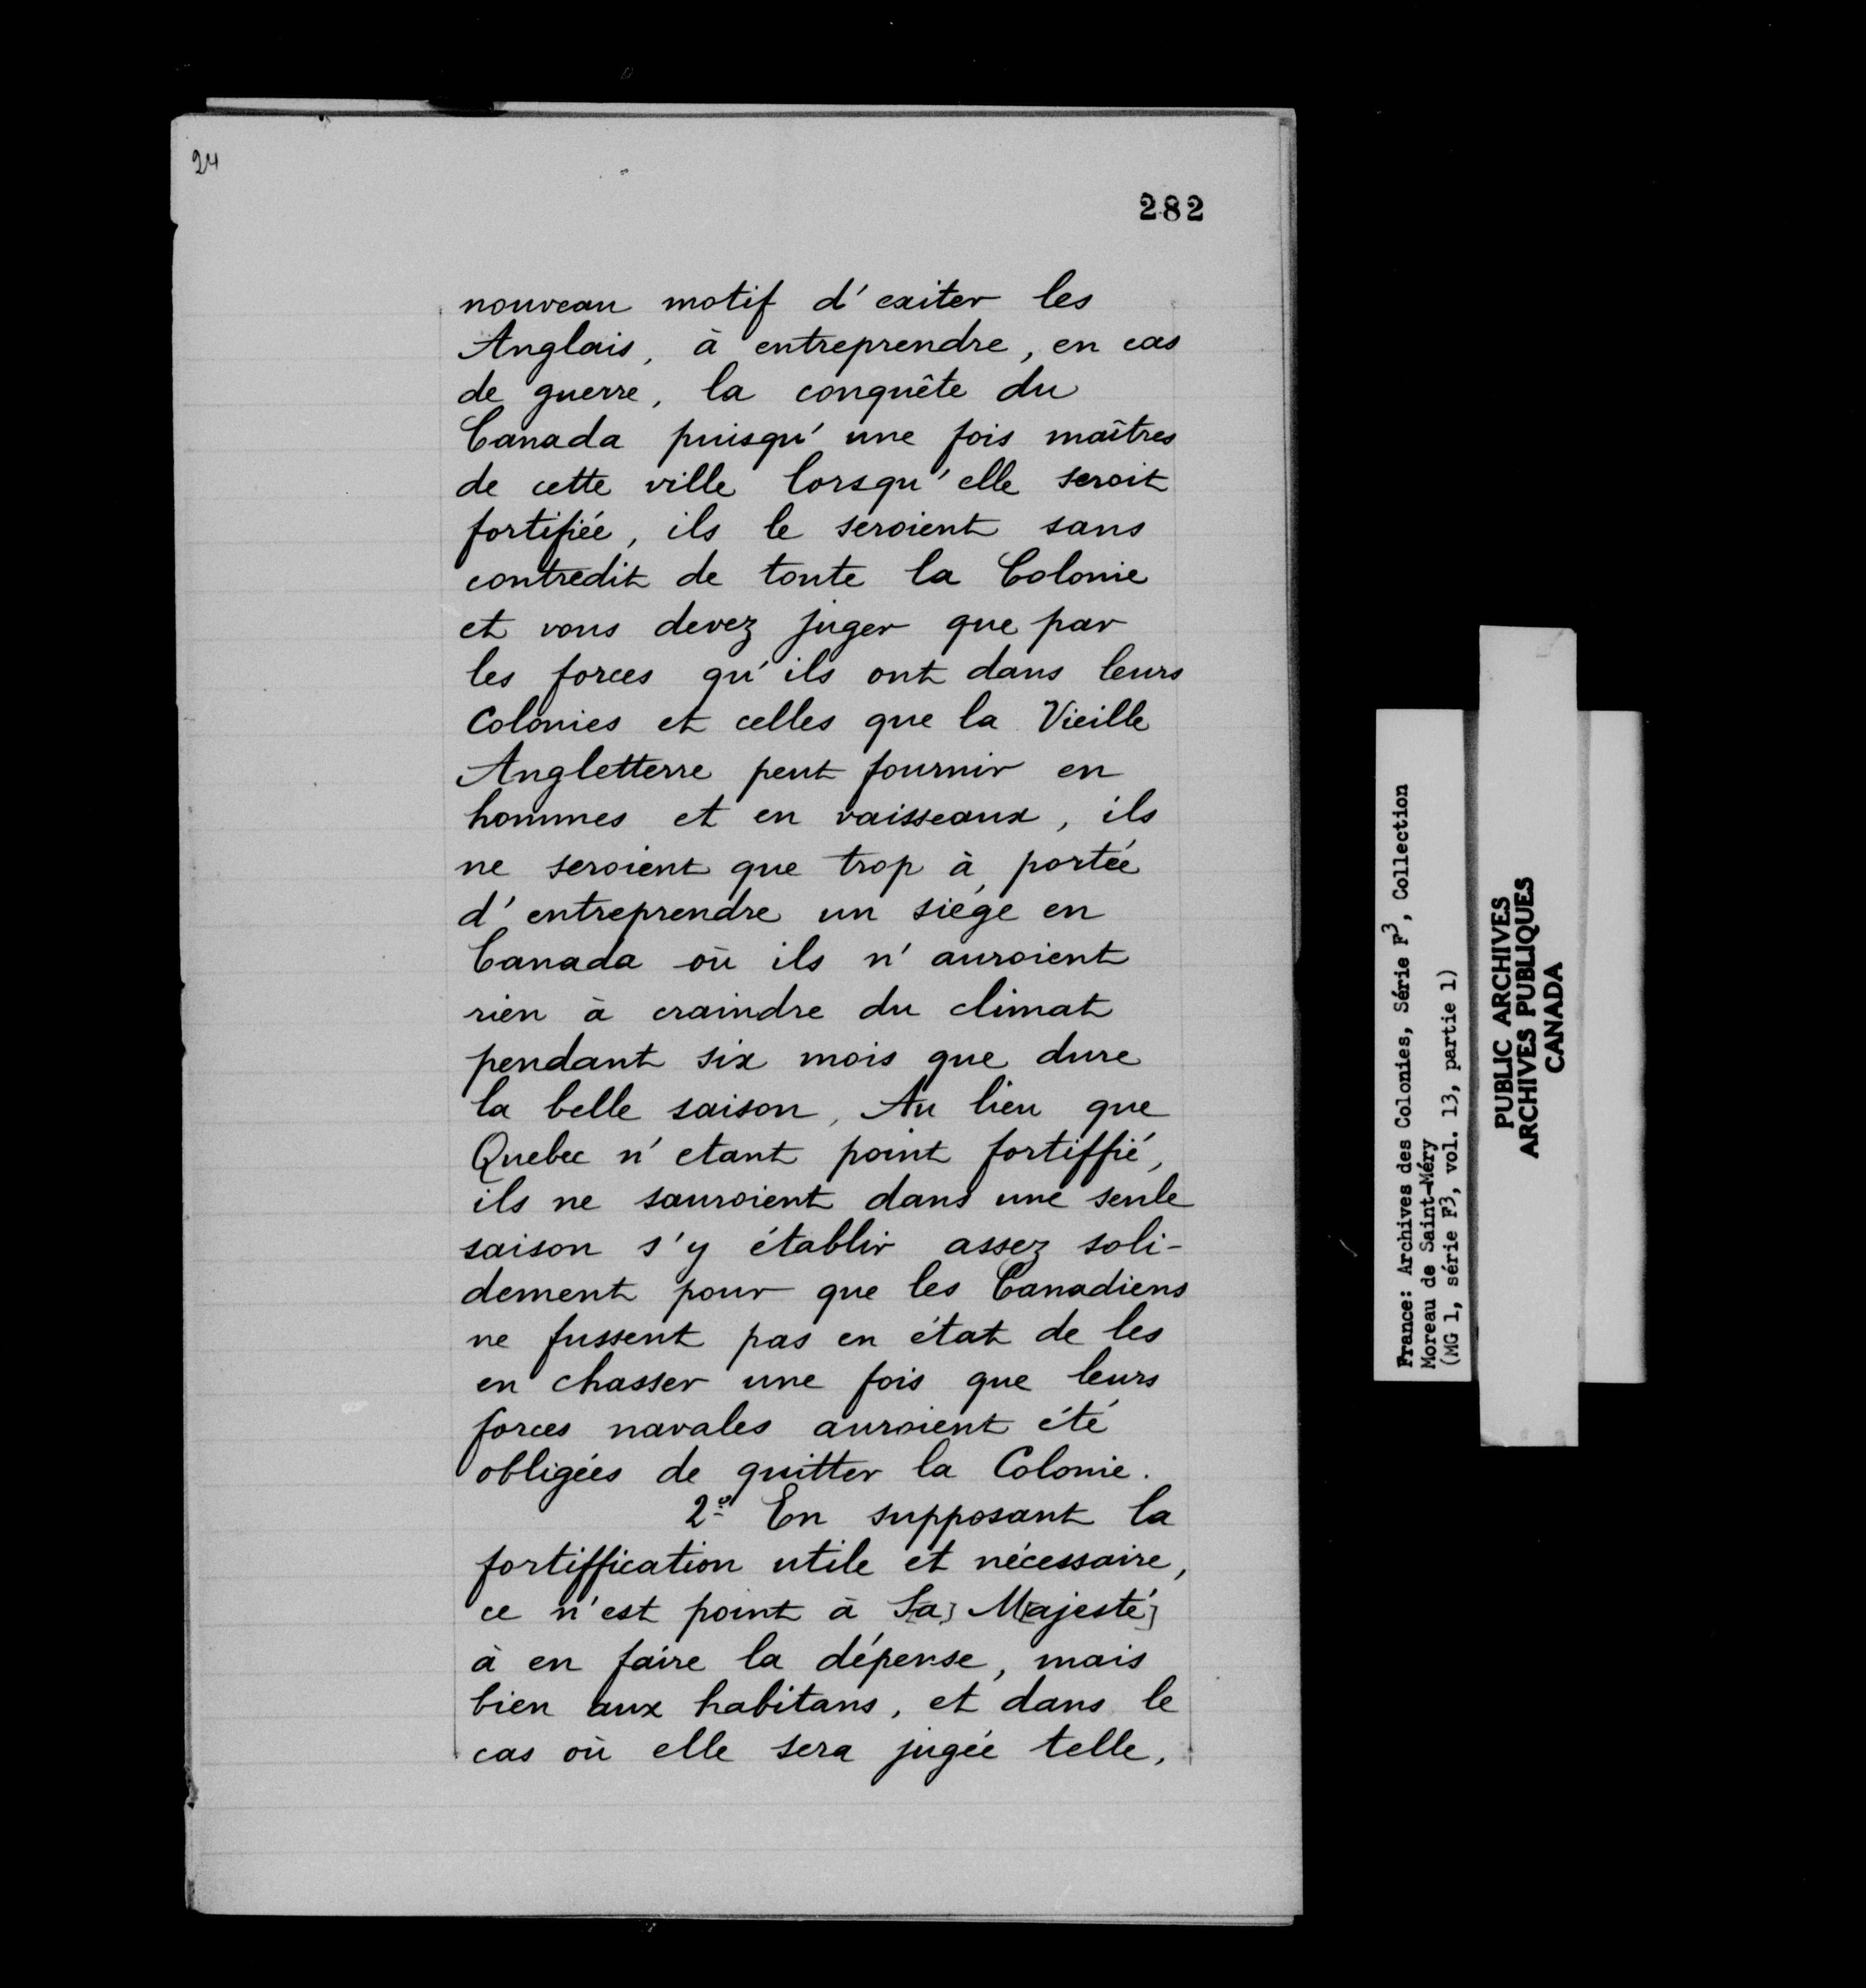 24
282
nouveau motif d'exiter les
Anglais, à entreprendre, en cas
de guerre, la conquête du
Canada puisqu'une fois maîtres
de cette ville lorsqu'elle seroit
fortifiée, ils le seroient sans
contredit de toute la Colonie
et vous devez juger que par
les forces qu'ils ont dans leurs
Colonies et celles que la Vieille
Angletterre peut fournir en
hommes et en vaisseaux, ils
ne seroient que trop à portée
d'entreprendre un siége en
Canada où ils n'auroient
rien à craindre du climat
pendant six mois que dure
la belle saison, Au lieu que
Quebec n'etant point fortiffié,
ils ne sauroient dans une seule
saison s'y établir assez soli-
dement pour que les Canadiens
ne fussent pas en état de les
en chasser une fois que leurs
forces navales auroient été
obligées de quitter la Colonie.
2º En supposant la
fortiffication utile et nécessaire,
ce n'est point à S[a] M[ajesté]
à en faire la dépense, mais
bien aux habitans, et dans le
cas où elle sera jugée telle,
France: Archives des Colonies, Série F3, Collection
Moreau de Saint-Méry
(MG 1, série F3, vol. 13, partie 1)
PUBLIC ARCHIVES
ARCHIVES PUBLIQUES
CANADA